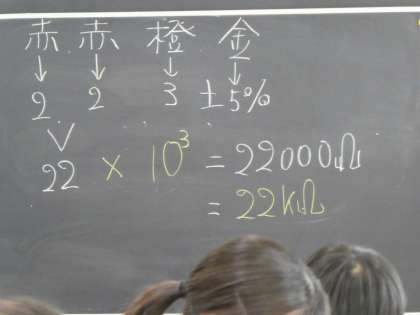 赤 赤 橙 金
↓ ↓ ↓ ↓
2 2 3 ±5%
22 × 10³ = 22000Ω
= 22kΩ